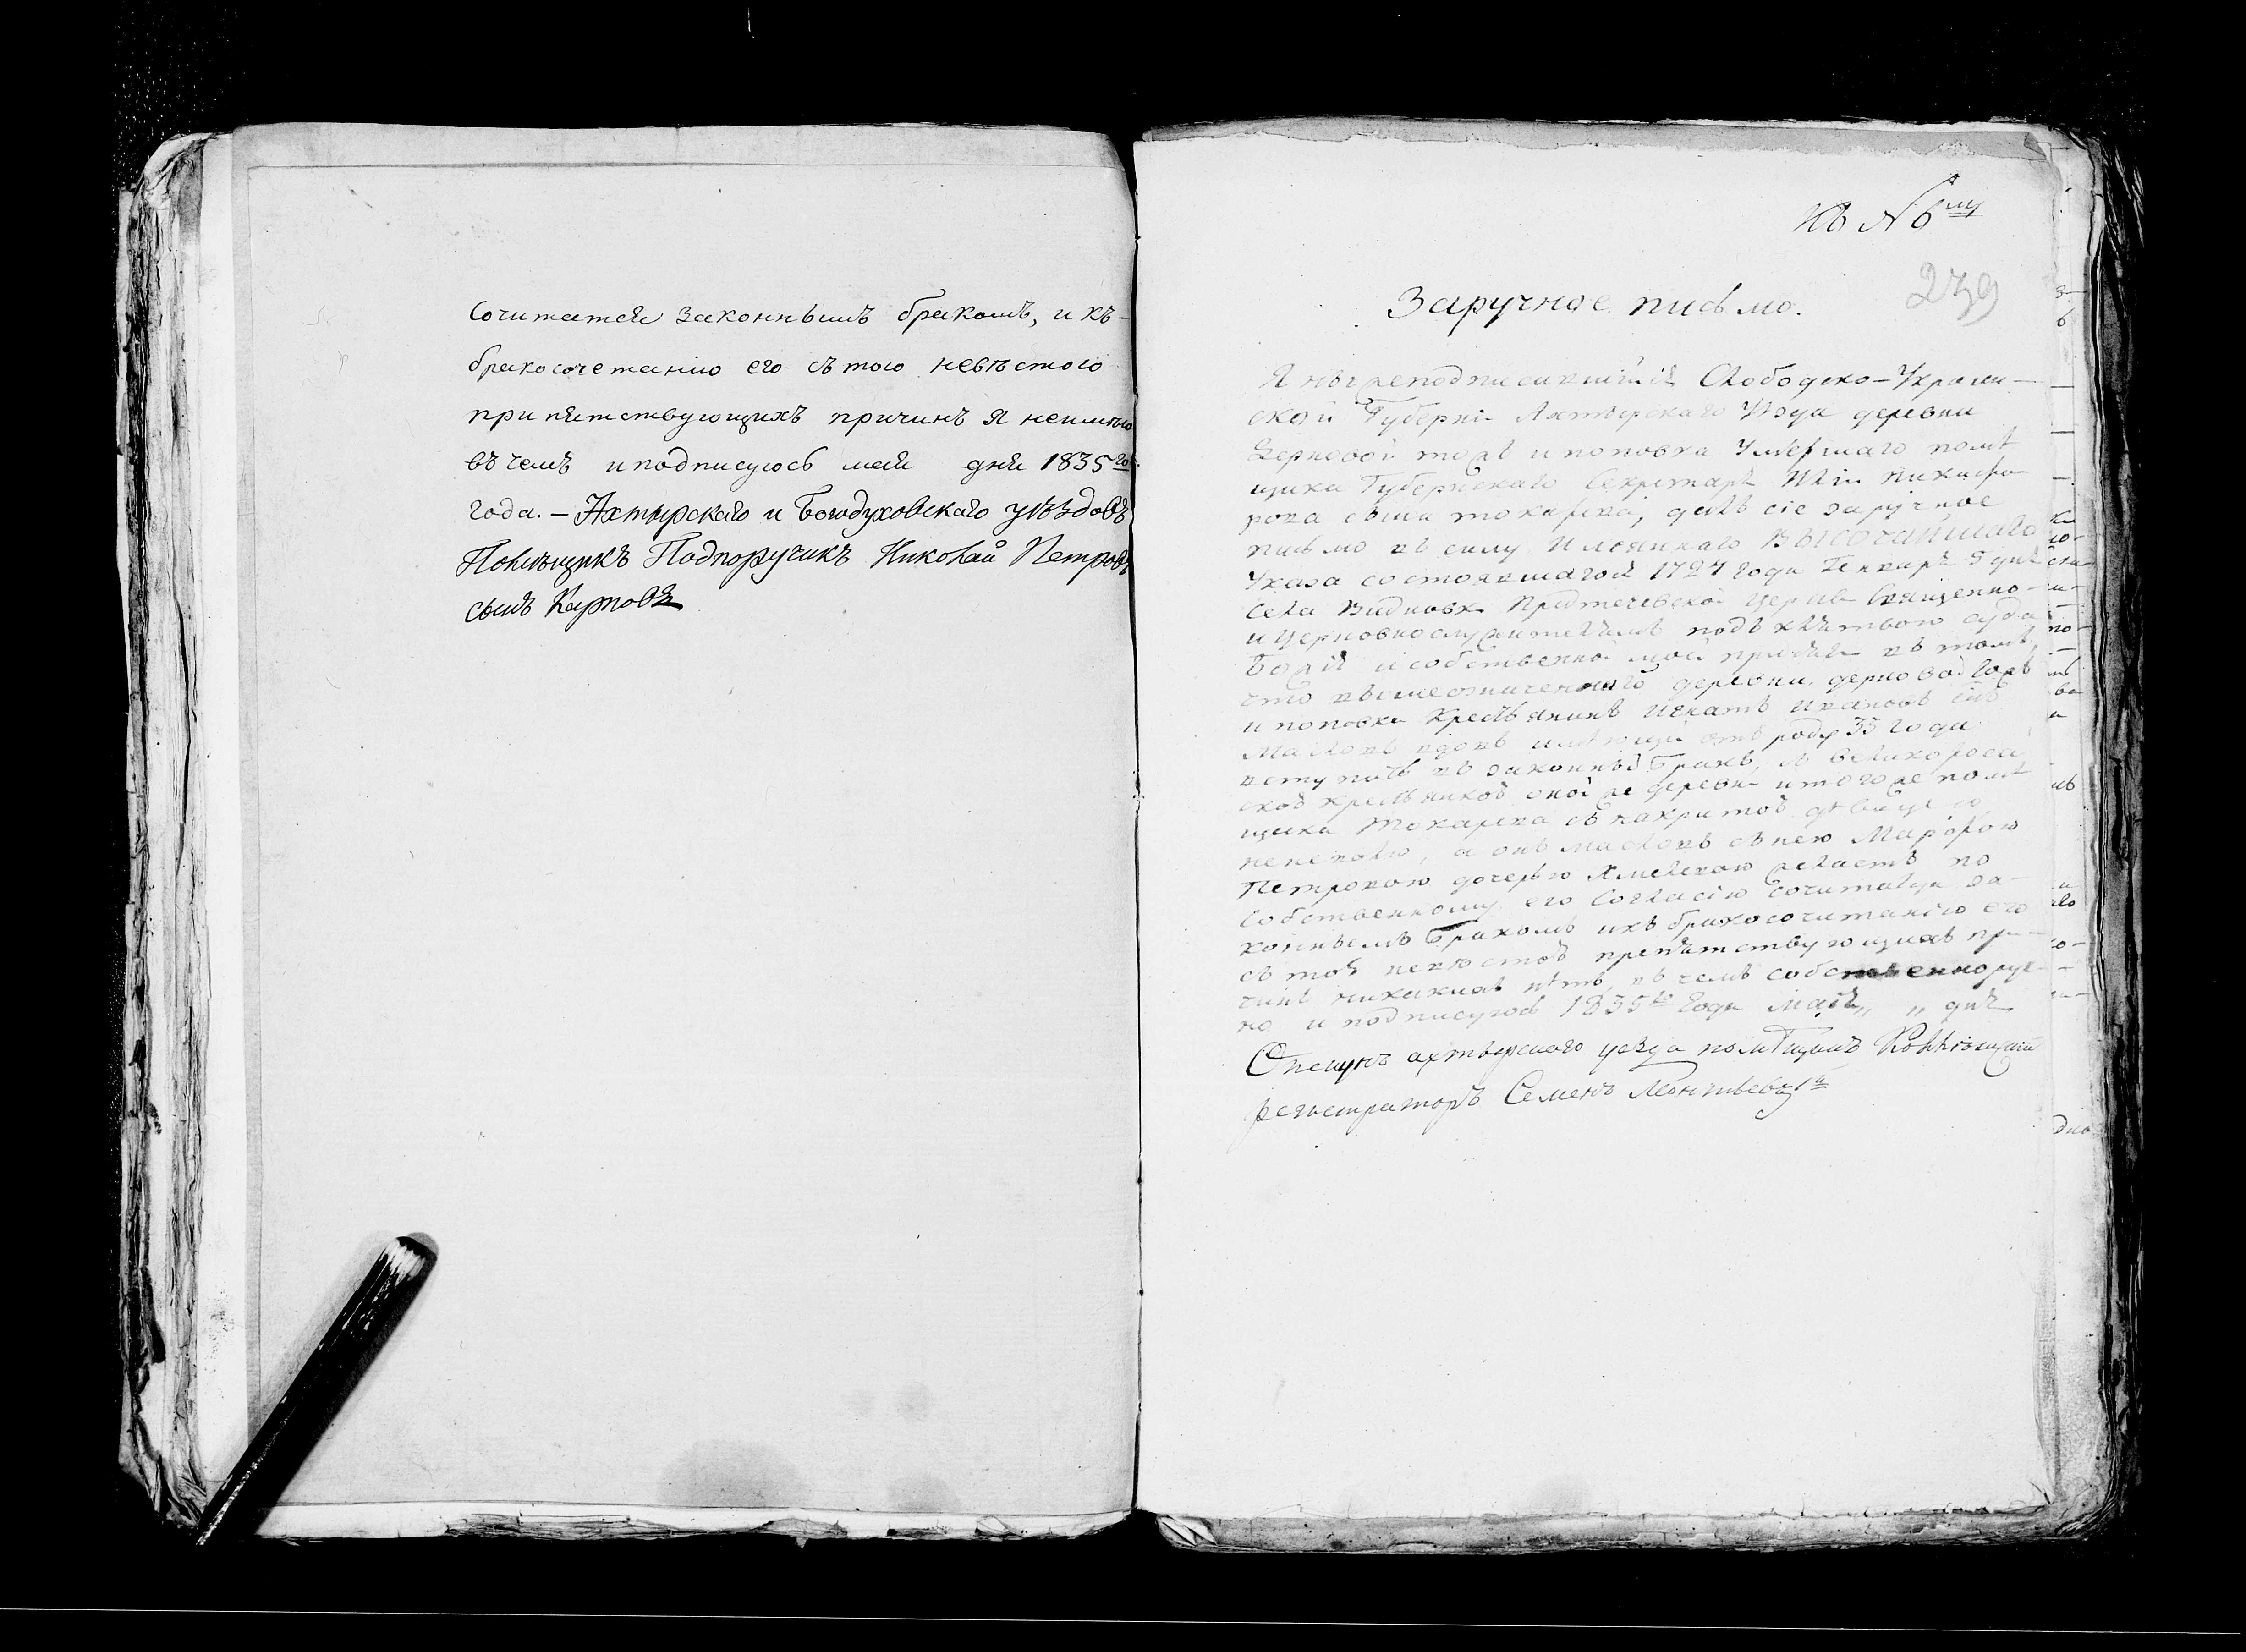 Сочитатся законнымъ бракомъ, и къ-
бракосочетанію его съ тою невѣстого
припятствующихъ причинъ я неимѣю
въ чемъ и подписуюсь мая дня 1835го
года. - Ахтырскаго и Богодуховскаго уѣздовъ
Помѣщикъ Подпоручикъ Николай Петровъ
сынъ Карповъ
къ №6му
239
Заручное письмо.
Я нижеподписавшійся Слободско-Украин-
ской Губерніи Ахтырскаго Уѣзда деревни
Дерновой тожъ и поповка Умершаго помѣ
щика Губернскаго Секретаря Никифо
рова сына токарева, далъ сіе заручное
письмо въ силу Имяннаго ВЫСОЧАЙШАГО
Указа состоявшагося 1724 года Генваря 5 дня
села Предтечевской Церкви Священно-
и Церковнослужителямъ подъ клятвою суда
Божія и собственной моей присяги въ томъ,
что вышеозначенного деревни дерновой тожъ
и поповки Крестьянинъ Игнатъ Ивановъ сынъ
Масловъ вдовъ имѣющи отъ роду 35 года
вступить въ законный Бракъ, съ великоросій
ской крестьянкой оной же деревни и того же помѣ
щика Токарева съ накритой дѣвицею
невѣстою, а онъ Масловъ съ нею Марфою
Петровою дочерью желаетъ по
собственному его согласію сочитаться за-
коннымъ Бракомъ икъ бракосочитанію его
съ той невѣстой препятствующихъ при-
чинъ никакихъ нѣтъ, въ чемъ собственноруч-
но и подписуюсь 1835го Года мая „ „ дня
Опекунъ ахтырского уезда помѣщикъ
регистраторъ Семенъ